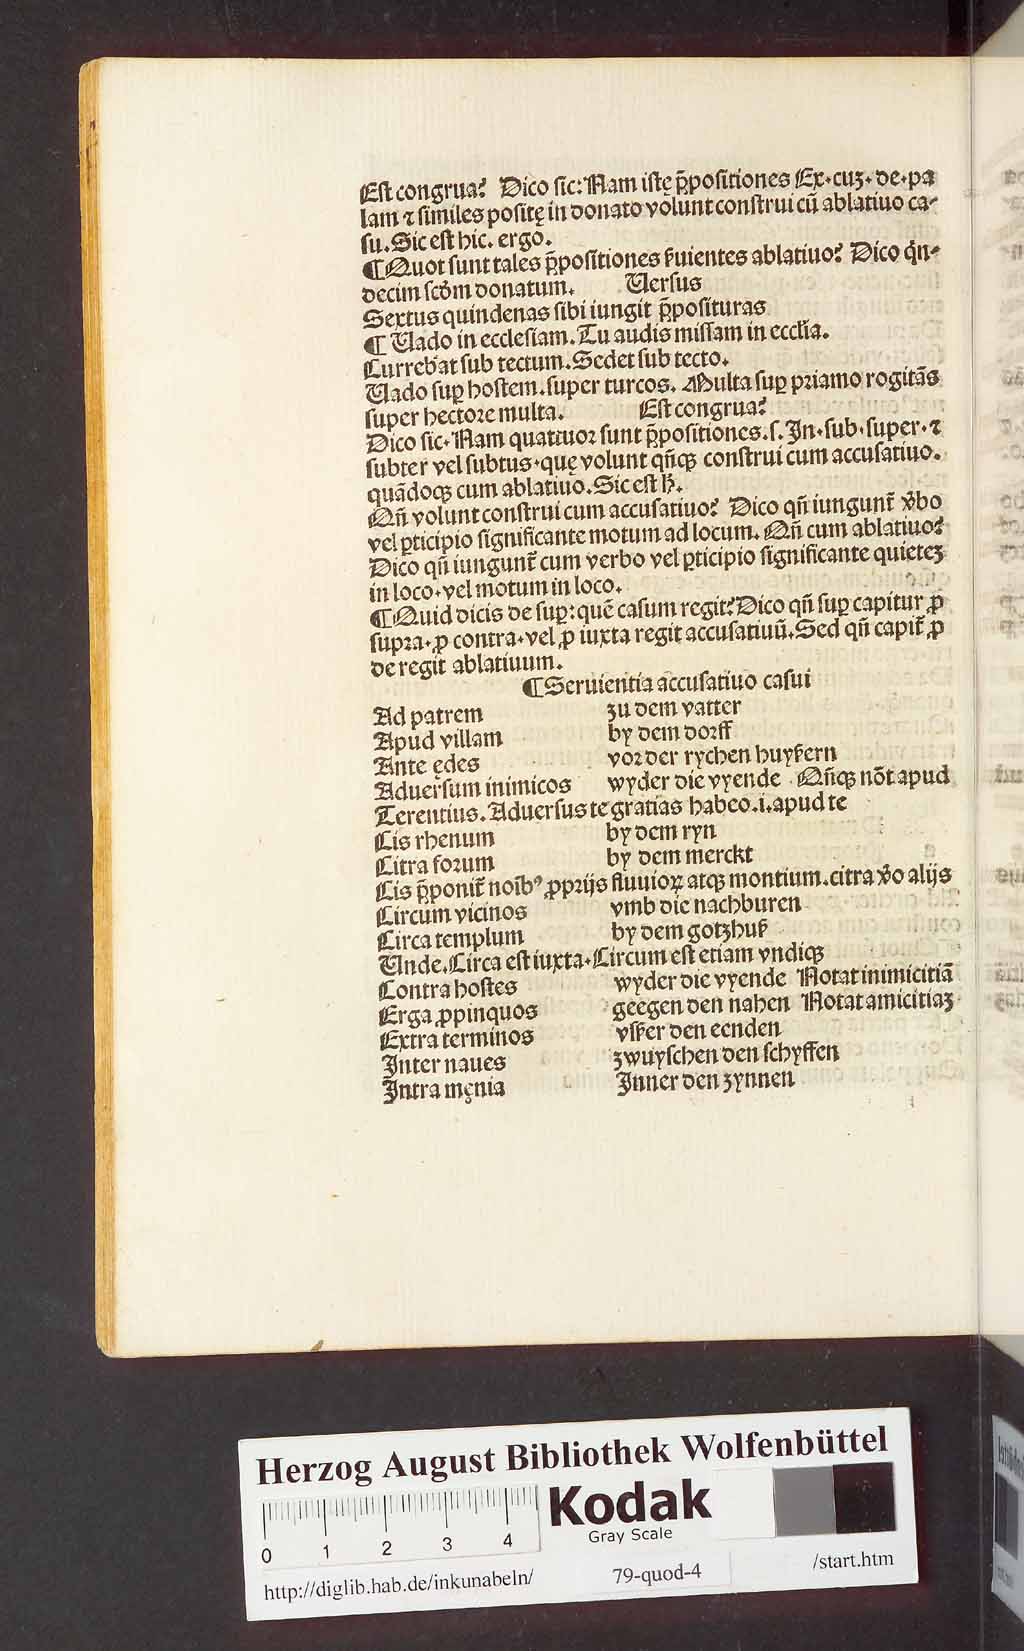 Est congrua? Dico sic: Nam istę p̄positiones Ex. cuʒ. de. pa
lam ⁊ similes positę in donato volunt construi cū ablatiuo ca⸗
su. Sic est hic. ergo.
¶ Quot sunt tales p̄positiones ẜuientes ablatiuo? Dico qn̄⸗
decim scd̄m donatum. Versus
Sextus quindenas sibi iungit p̄posituras
¶ Vado in ecclesiam. Tu audis missam in eccl̄ia.
Currebat sub tectum. Sedet sub tecto.
Vado suꝑ hostem. super turcos. Multa suꝑ priamo rogitās
super hectore multa. Est congrua?
Dico sic. Nam quattuor sunt p̄positiones. s. In. sub. super. ⁊
subter vel subtus. quę volunt qn̄qꝫ construi cum accusatiuo.
quādoqꝫ cum ablatiuo. Sic est h̄.
Qn̄ volunt construi cum accusatiuo? Dico qn̄ iungunt̄ v̄bo
vel ꝑticipio significante motum ad locum. Qn̄ cum ablatiuo?
Dico qn̄ iungunt̄ cum verbo vel ꝑticipio significante quieteʒ
in loco. vel motum in loco.
¶ Quid dicis de suꝑ: quē casum regit? Dico qn̄ suꝑ capitur ꝓ
supra. ꝓ contra. vel ꝓ iuxta regit accusatiuū. Sed qn̄ capit̄ ꝓ
de regit ablatiuum.
¶ Seruientia accusatiuo casui
Ad patrem zu dem vatter
Apud villam by dem dorff
Ante ędes vor der rychen huyßern
Aduersum inimicos wyder die vyende Qn̄qꝫ nōt apud
Terentius. Aduersus te gratias habeo. i. apud te
Cis rhenum by dem ryn
Citra forum by dem merckt
Cis p̄ponit̄ noībꝰ ꝓprijs fluuioꝝ atqꝫ montium. citra v̄o alijs
Circum vicinos vmb die nachburen
Circa templum by dem gotzhuß
Unde. Circa est iuxta. Circum est etiam vndiqꝫ
Contra hostes wyder die vyende Notat inimicitiā
Erga ꝓpinquos geegen den nahen Notat amicitiaʒ
Extra terminos vsser den eenden
Inter naues zwuyschen den schyffen
Intra męnia Inner den zynnen
Herzog August Bibliothek Wolfenbüttel
Kodak
Gray Scale
0 1 2 3 4
http://diglib.hab.de/inkunabeln/ 79-quod-4 /start.htm